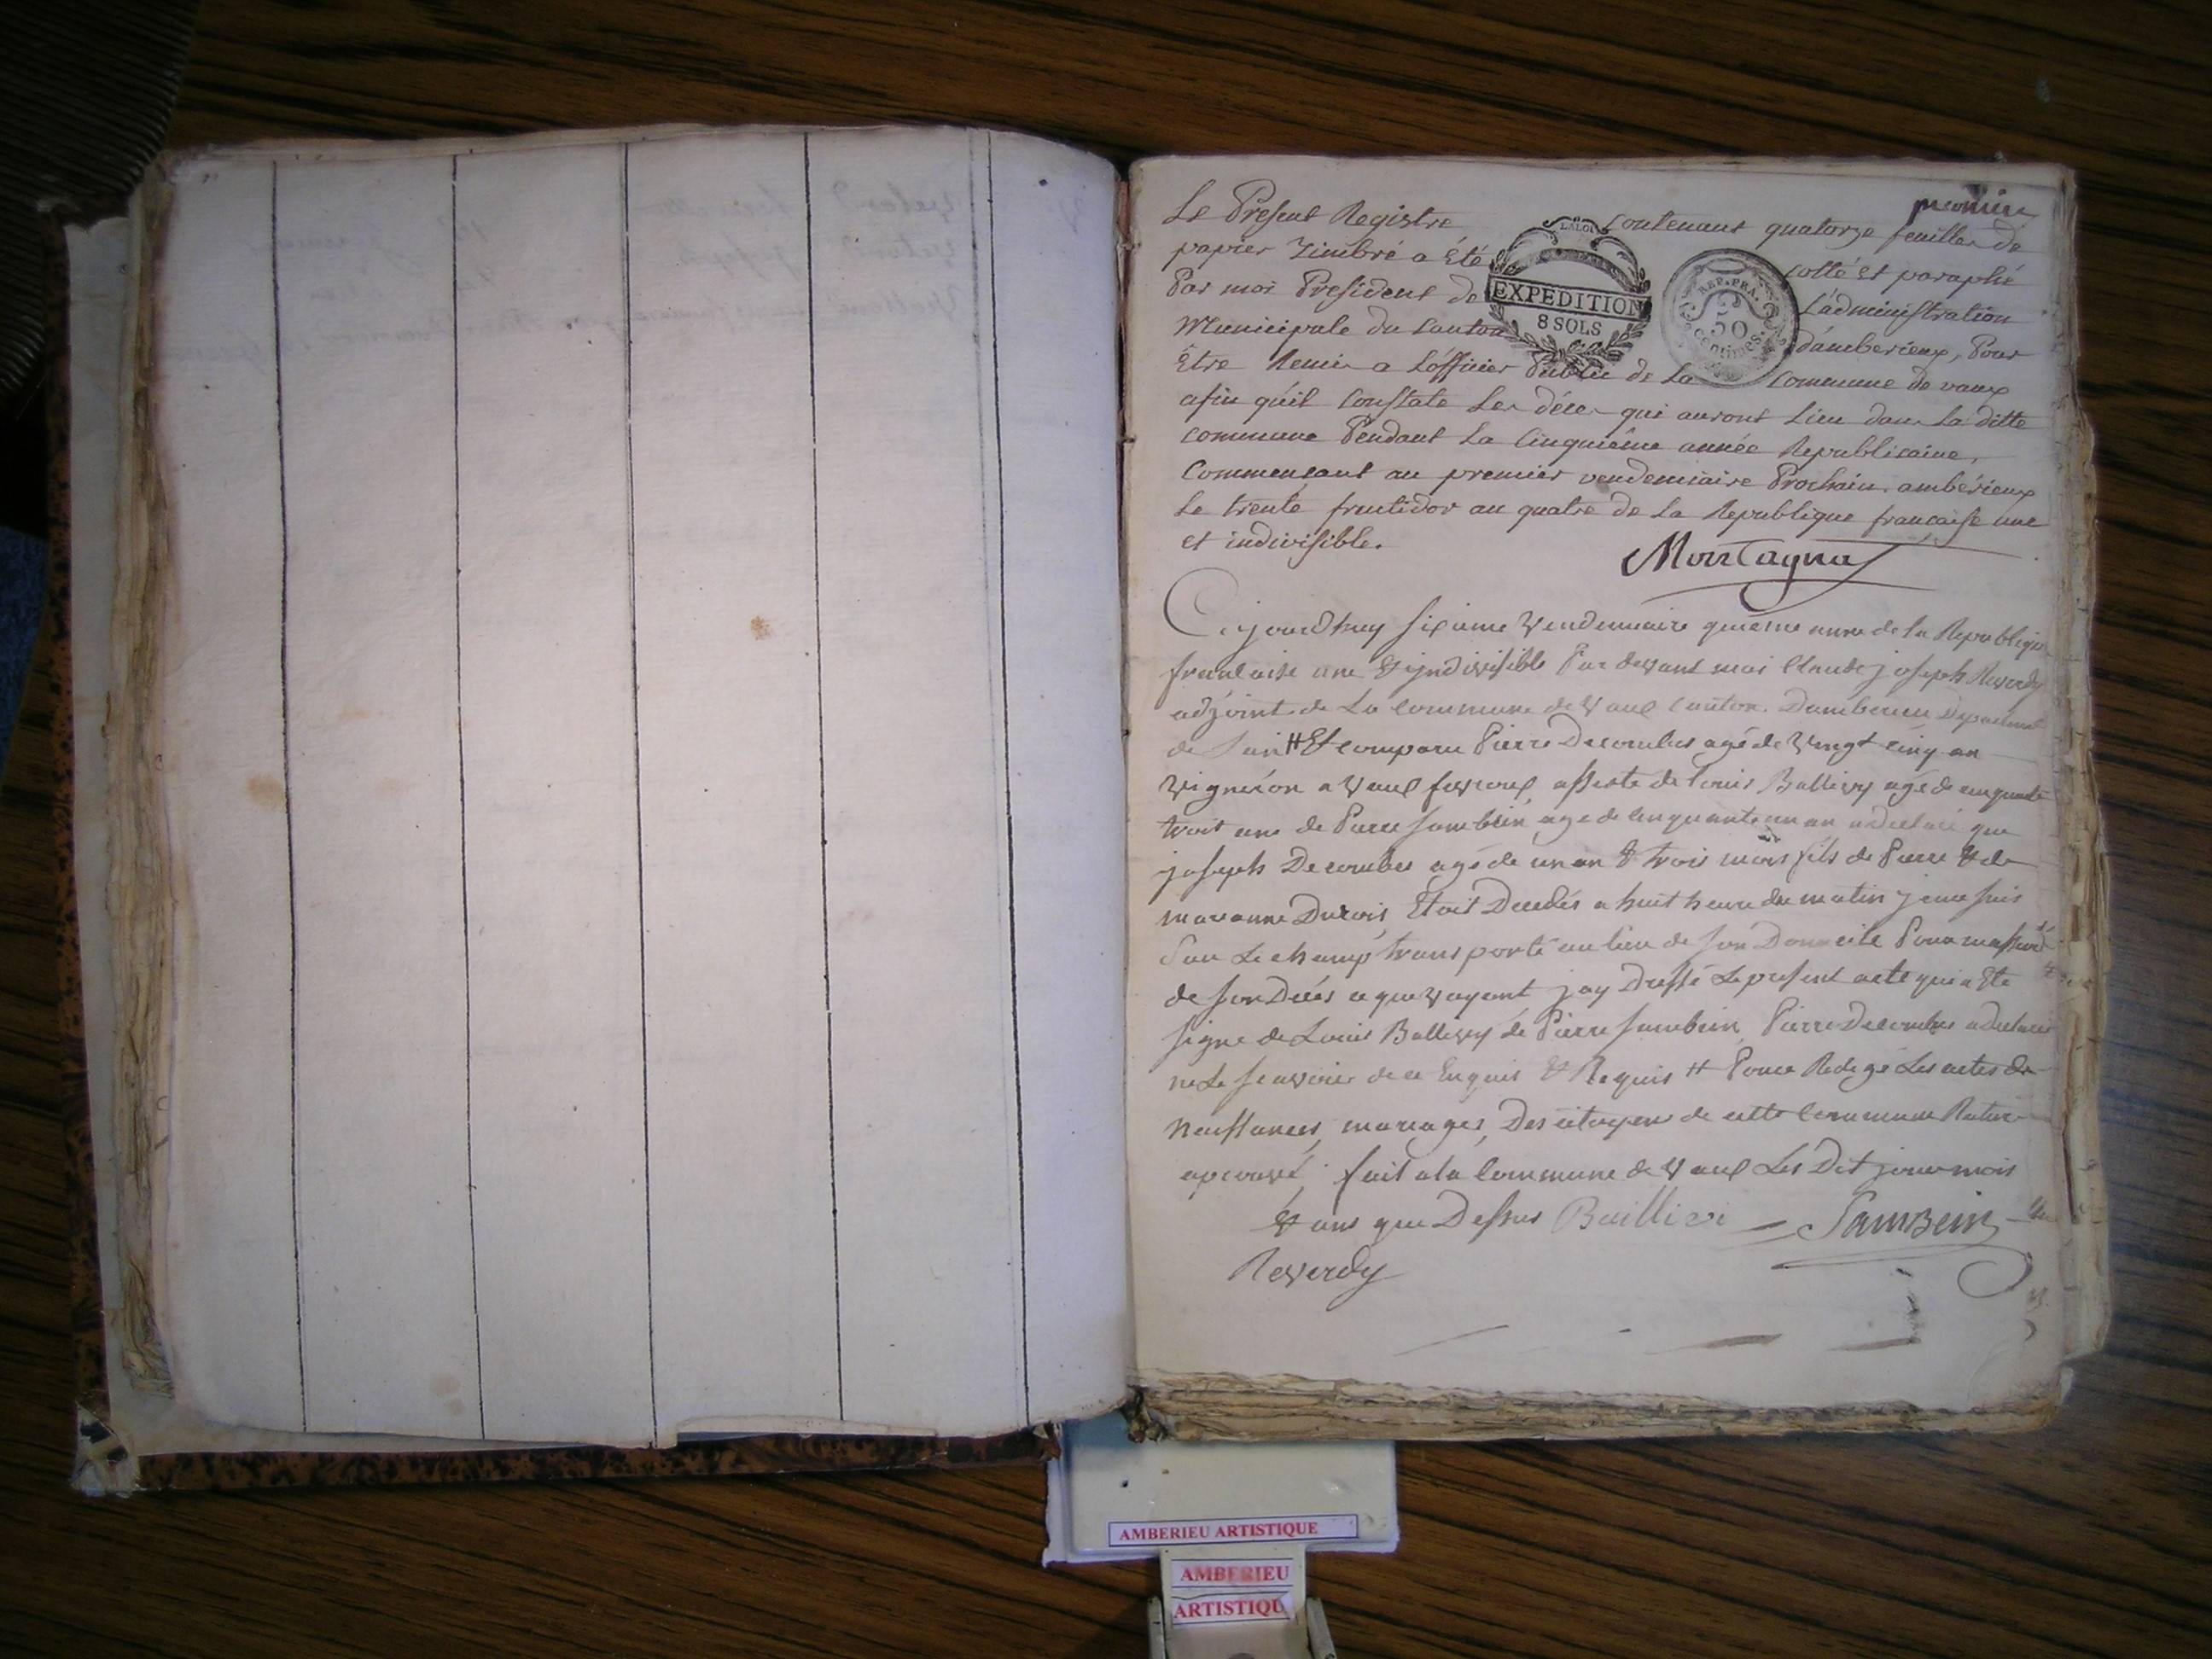 premier
Le Present Registre contenant quatorze feuilles de
papier Timbré a été cotté et paraphé
Par moi President de L'administration
Municipale du Canton d'amberieux, Pour
Etre Remis a L'officier Public de La Commune de vaux
afin qu'il Constate Les décès qui auront Lieu dans La ditte
commune Pendant La Cinquième année Republicaine,
Commençant au premier vendemiaire Prochain. ambérieux
Le trente fructidor an quatre de La Republique française une
et indivisible.
Montagnat
LA LOI
EXPEDITION
8 SOLS
REP. FRA.
50
centimes
Cejourdhuy sixieme Vendemiaire année de la Republique
francaise une & jndivisible Par devant moi Claude joseph Reverdy
adjoint de La commune de Vaux canton Damberieu Departement
de Lain # Et comparu Pierre Decombes agé de Vingt cinq an
Vigneron a Vaux assisté de Louis Ballivy agé de cinquante
trois ans de Pierre Sambein agé de cinquante un an a declaré que
joseph Decombes agé de un an & trois mois fils de Pierre & de
marianne Etoit Decedés a huit heure du matin je me suis
Sur Le champ transporté au lieu de son Domicile Pour massuré
de son Décés jay Dressé Le present acte qui a Ete
signe de Louis Ballivy de Pierre Sambein Pierre Decombes a declaré
ne Le scavoire de ce Enquis & Requis # Pour Redigé Les actes de
Naissances, mariages, Des citoyens de cette Commune
fait a la Commune de Vaux Les Dit jour mois
& ans que Dessus Baillivi Sambein
Reverdy
AMBERIEU ARTISTIQUE
AMBERIEU
ARTISTIQU